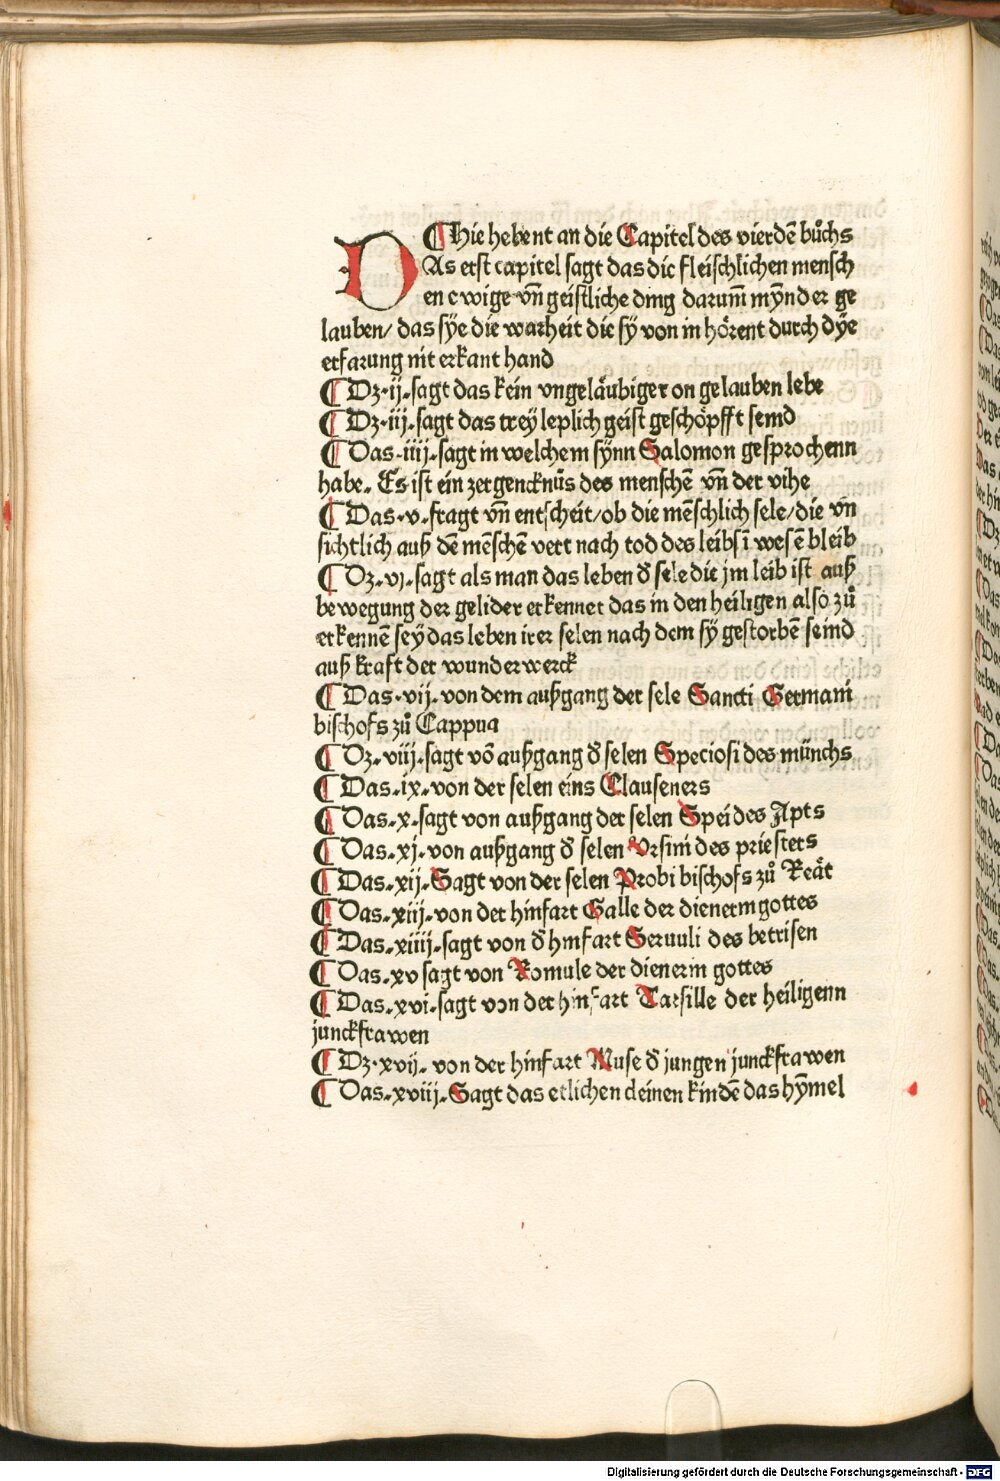 ¶ Hie hebent an die Capitel des vierdē bůchs
DAs erst capitel sagt das die fleischlichen mensch
en ewige vn̄ geistliche ding darum̄ mȳnder ge
lauben/ das sÿe die warheit die sÿ von in hörent durch dÿe
erfarung nit erkant hand
¶ Dz·ij·sagt das kein vngeläubiger on gelauben lebe
¶ Dz·iij·sagt das trey leplich geist geschöpfft seind
¶ Das·iiij·sagt in welchem sÿnn Salomon gesprochenn
habe. Es ist ein zergencknüs des menschē vn̄ der vihe
¶ Das·v·fragt vn̄ entscheit/ob die mēschlich sele/die vn
sichtlich auß dē mēschē vert nach tod des leibs ī wesē bleib
¶ Dz·vj·sagt als man das leben đ sele die jm leib ist auß
bewegung der gelider erkennet das in den heiligen also zů
erkennē seÿ das leben irer selen nach dem sÿ gestorbē seind
auß kraft der wunderwerck
¶ Das·vij·von dem außgang der sele Sancti Germani
bischofs zů Cappua
¶ Dz·viij·sagt vō außgang đ selen Speciosi des münchs
¶ Das·ix·von der selen eins Clauseners
¶ Das·x·sagt von außgang der selen Spei des Apts
¶ Das·xj·von außgang đ selen Vrsini des priesters
¶ Das·xij·Sagt von der selen Probi bischofs zů Reät
¶ Das·xiij·von der hinfart Galle der dienerin gottes
¶ Das·xiiij·sagt von đ hinfart Seruuli des betrisen
¶ Das·xv sagt von Romule der dienerin gottes
¶ Das·xvi·sagt von der hinfart Tarsille der heiligenn
junckfrawen
¶ Dz·xvij· von der hinfart Muse đ jungen junckfrawen
¶ Das·xviij·Sagt das etlichen cleinen kindē das hȳmel
Digitalisierung gefördert durch die Deutsche Forschungsgemeinschaft - DFG